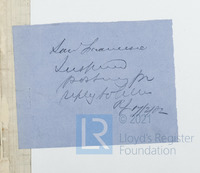 San Francisco
Suspend
posting for
reply to
© 2021
LR
Lloyd's Register
Foundation